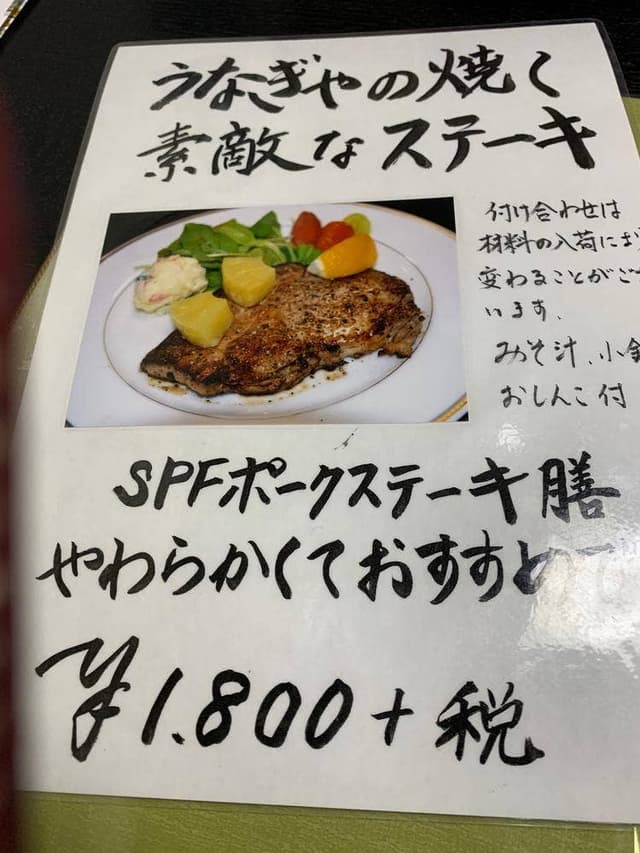 うなぎやの焼く
素敵なステーキ
付け合わせは
材料の入荷によ
変わることがご
います。
みそ汁、小鉢
おしんこ付
SPFポークステーキ膳
やわらかくておすすめ
¥1.800+税